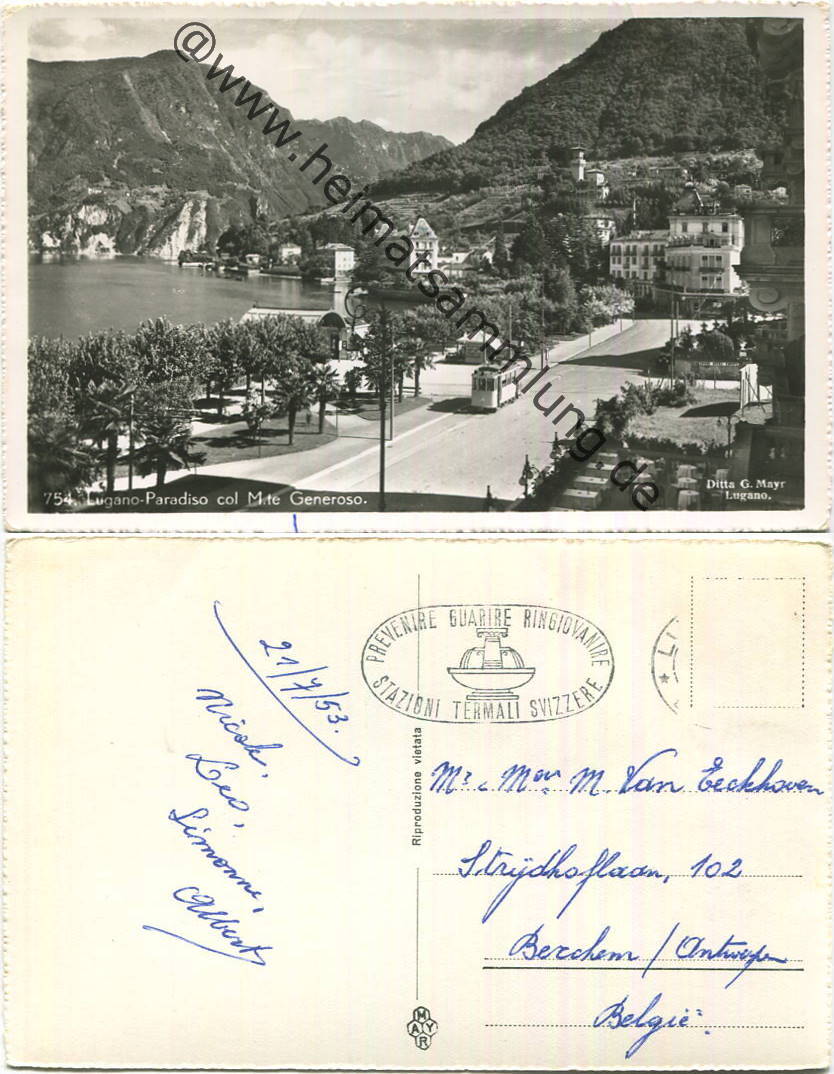 @www.heimatsammlung.de
754. Lugano-Paradiso col M.te Generoso.
Ditta G. Mayr
Lugano.
21/7/53.
Nicole,
Leo,
Simonne,
Albert
PREVENIRE GUARIRE RINGIOVANIRE
STAZIONI TERMALI SVIZZERE
Riproduzione vietata
MAYR
Mr & Mev M. Van Eeckhoven
Strijdhoflaan, 102
Berchem / Antwerpen
België